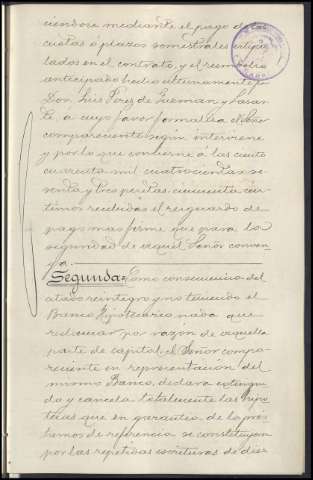 ciendose mediante el pago de las
cuotas ó plazos semestrales estipu
lados en el contrato, y el reembolso
anticipado hecho ultimamente
Don Luis Perez de Guzman y Lasar
te, a cuyo favor formaliza el Señor
compareciente segun interviene
y por lo que confiene á las ciento
cuarenta mil cuatrocientas se
senta y tres pesetas cincuenta cen
timos recibidas el resguardo de
pago mas firme que para la
seguridad de aquel Señor conven
ga.
Segunda: Como consecuencia del
citado reintegro y no teniendo el
Banco Hipotecario nada que
reclamar por razon de aquella
parte de capital, el Señor compa-
reciente en representacion del
mismo Banco, declara extingui
do y cancela totalmente las hipo
tecas que en garantia de los prés
tamos de referencia se constituyeron
por las repetidas escrituras de diez